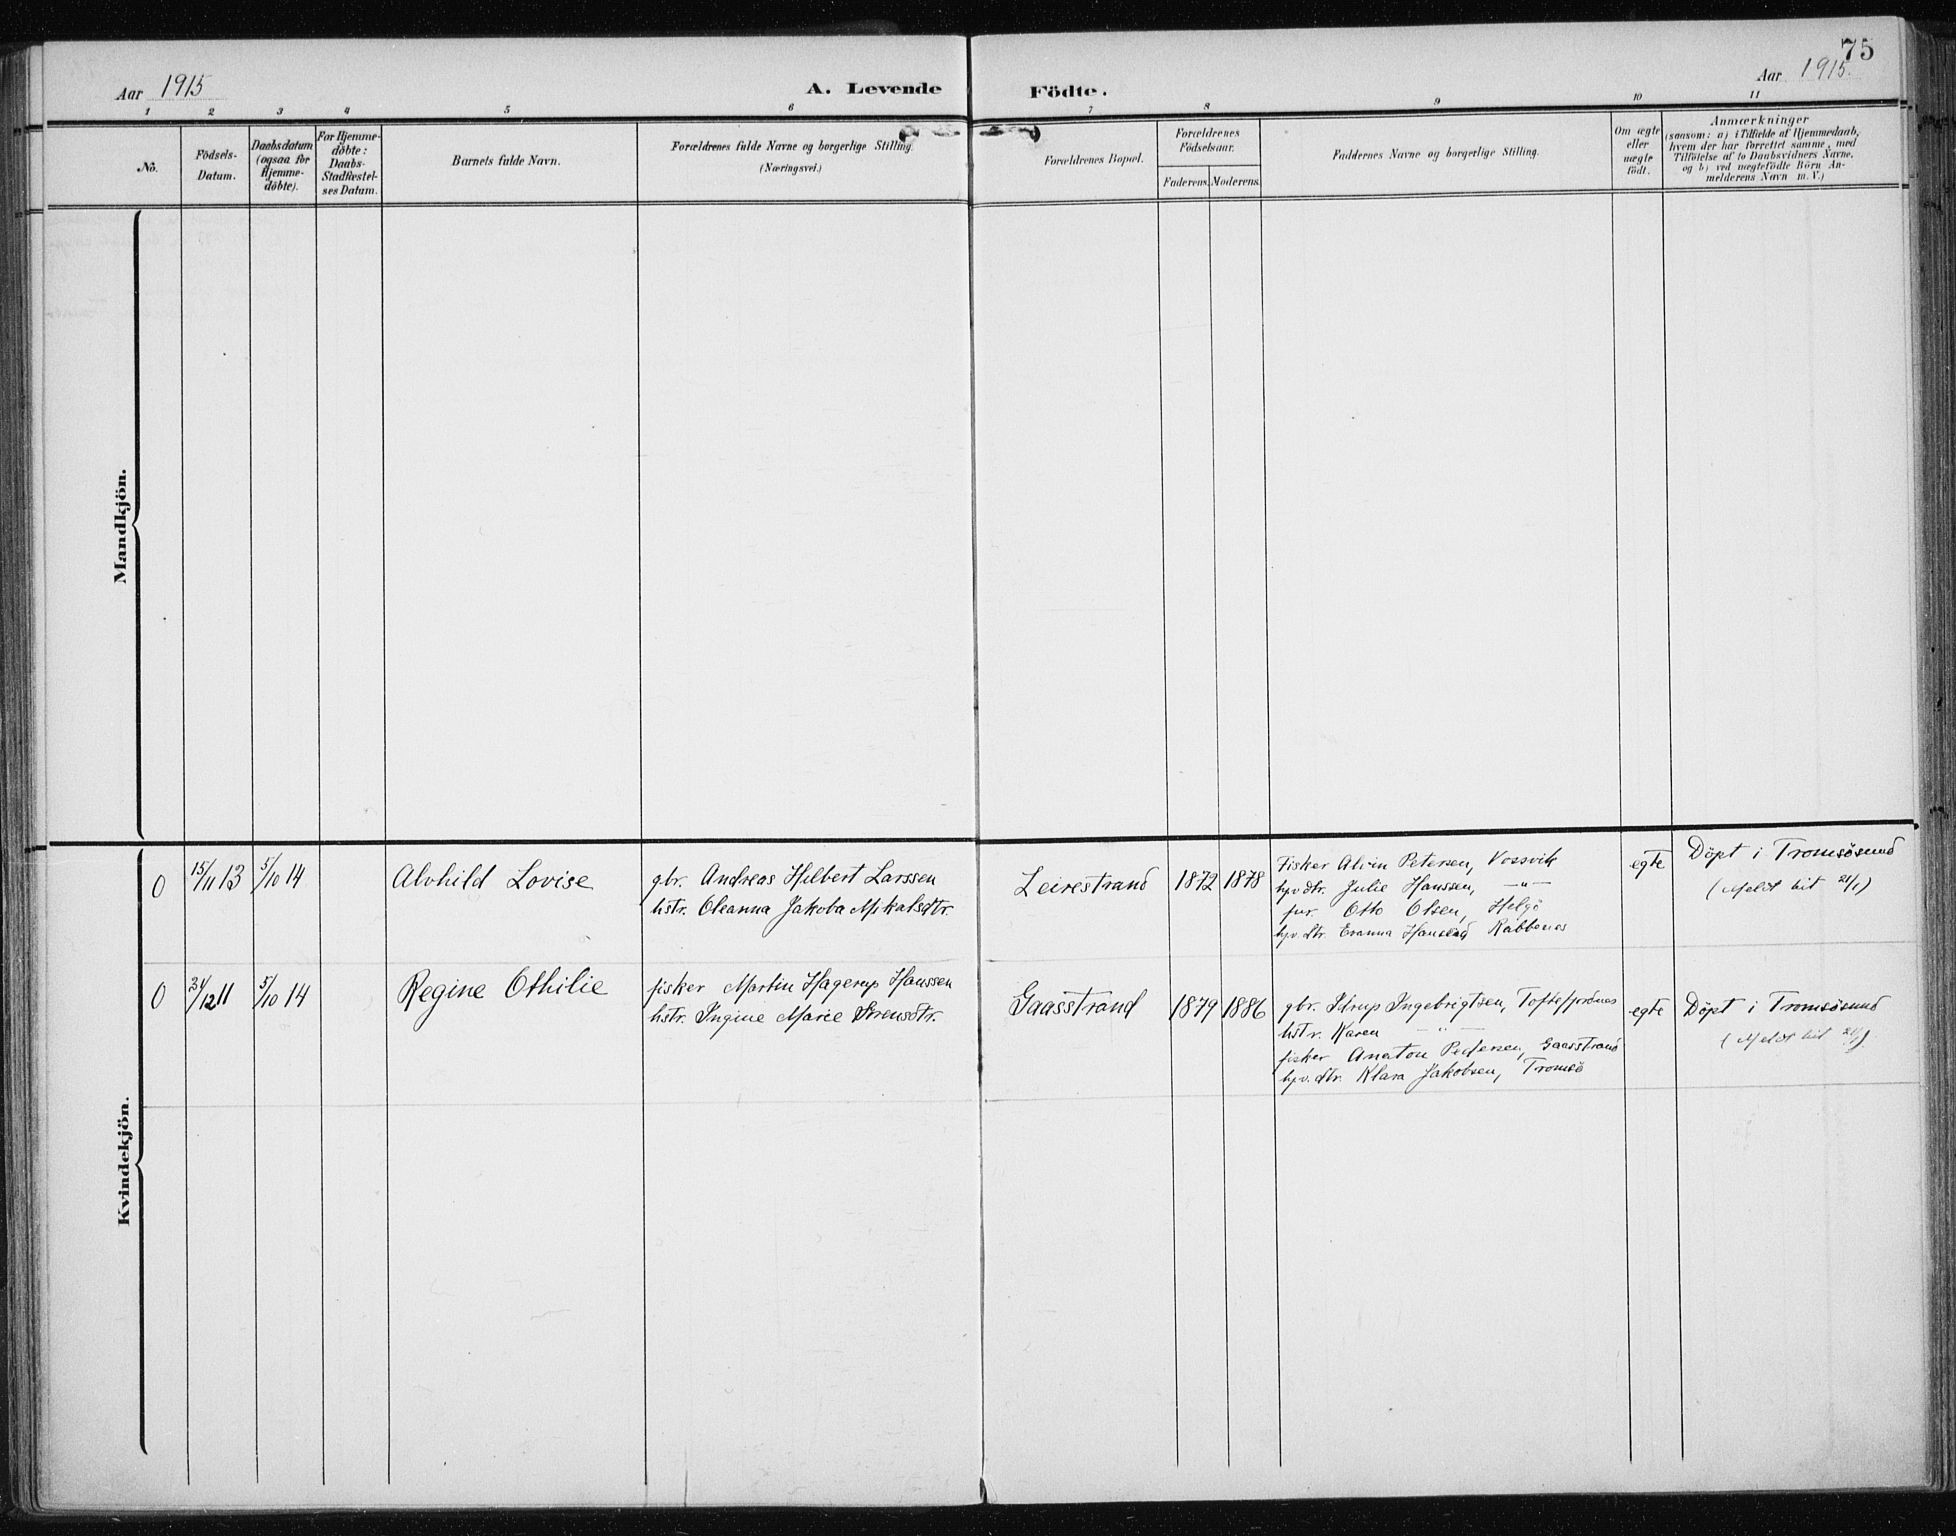 75
Aar 1915 A. Levende Födte. Aar 1915.
1 2 3 4 5 6 7 8 9 10 11
No.
Födsels-
Datum.
Daabsdatum
(ogsaa for
Hjemme-
döbte).
For Hjemme-
döbte:
Daabs-
Stadfæstel-
ses Datum.
Barnets fulde Navn.
Forældrenes fulde Navne og borgerlige Stilling.
(Næringsvei.)
Forældrenes Bopæl.
Forældrenes
Födselsaar.
Faderens. Moderens.
Faddernes Navne og borgerlige Stilling.
Om ægte
eller
uægte
födt.
Anmærkninger
(saasom: a) i Tilfælde af Hjemmedaab,
hvem der har forrettet samme, med
Tilföielse af to Daabsvidners Navne,
og b) ved uægtefödte Börn An-
melderens Navn m. V.)
Mandkjön.
Kvindekjön.
0 15/11 13 5/10 14 Alvhild Lovise
gbr. Andreas Hilbert Larssen
hstr. Oleanna Jakoba Mikalsdtr.
Leirestrand 1872 1878
Fisker Alvin Petersen, Vossvik
hpv dtr. Julie Hanssen, —"—
fur. Otto Olsen, Helgö
hpv. dtr. Evanna Rabbenes
egte
Döpt i Tromsösund
(Meldt hit 21/1)
0 24/12 11 5/10 14 Regine Othilie
fisker Martin Hagerup Hanssen
hstr. Ingine Marie
Gaasstrand 1879 1886
gbr. Idrup Ingebrigtsen, Toftefjordnes
hstr. Karen —"—
fisker Anaton Pedersen, Gaasstrand
hpv. dtr. Klara Jakobsen, Tromsö
egte
Döpt i Tromsösund
(Meldt hit 21/1)